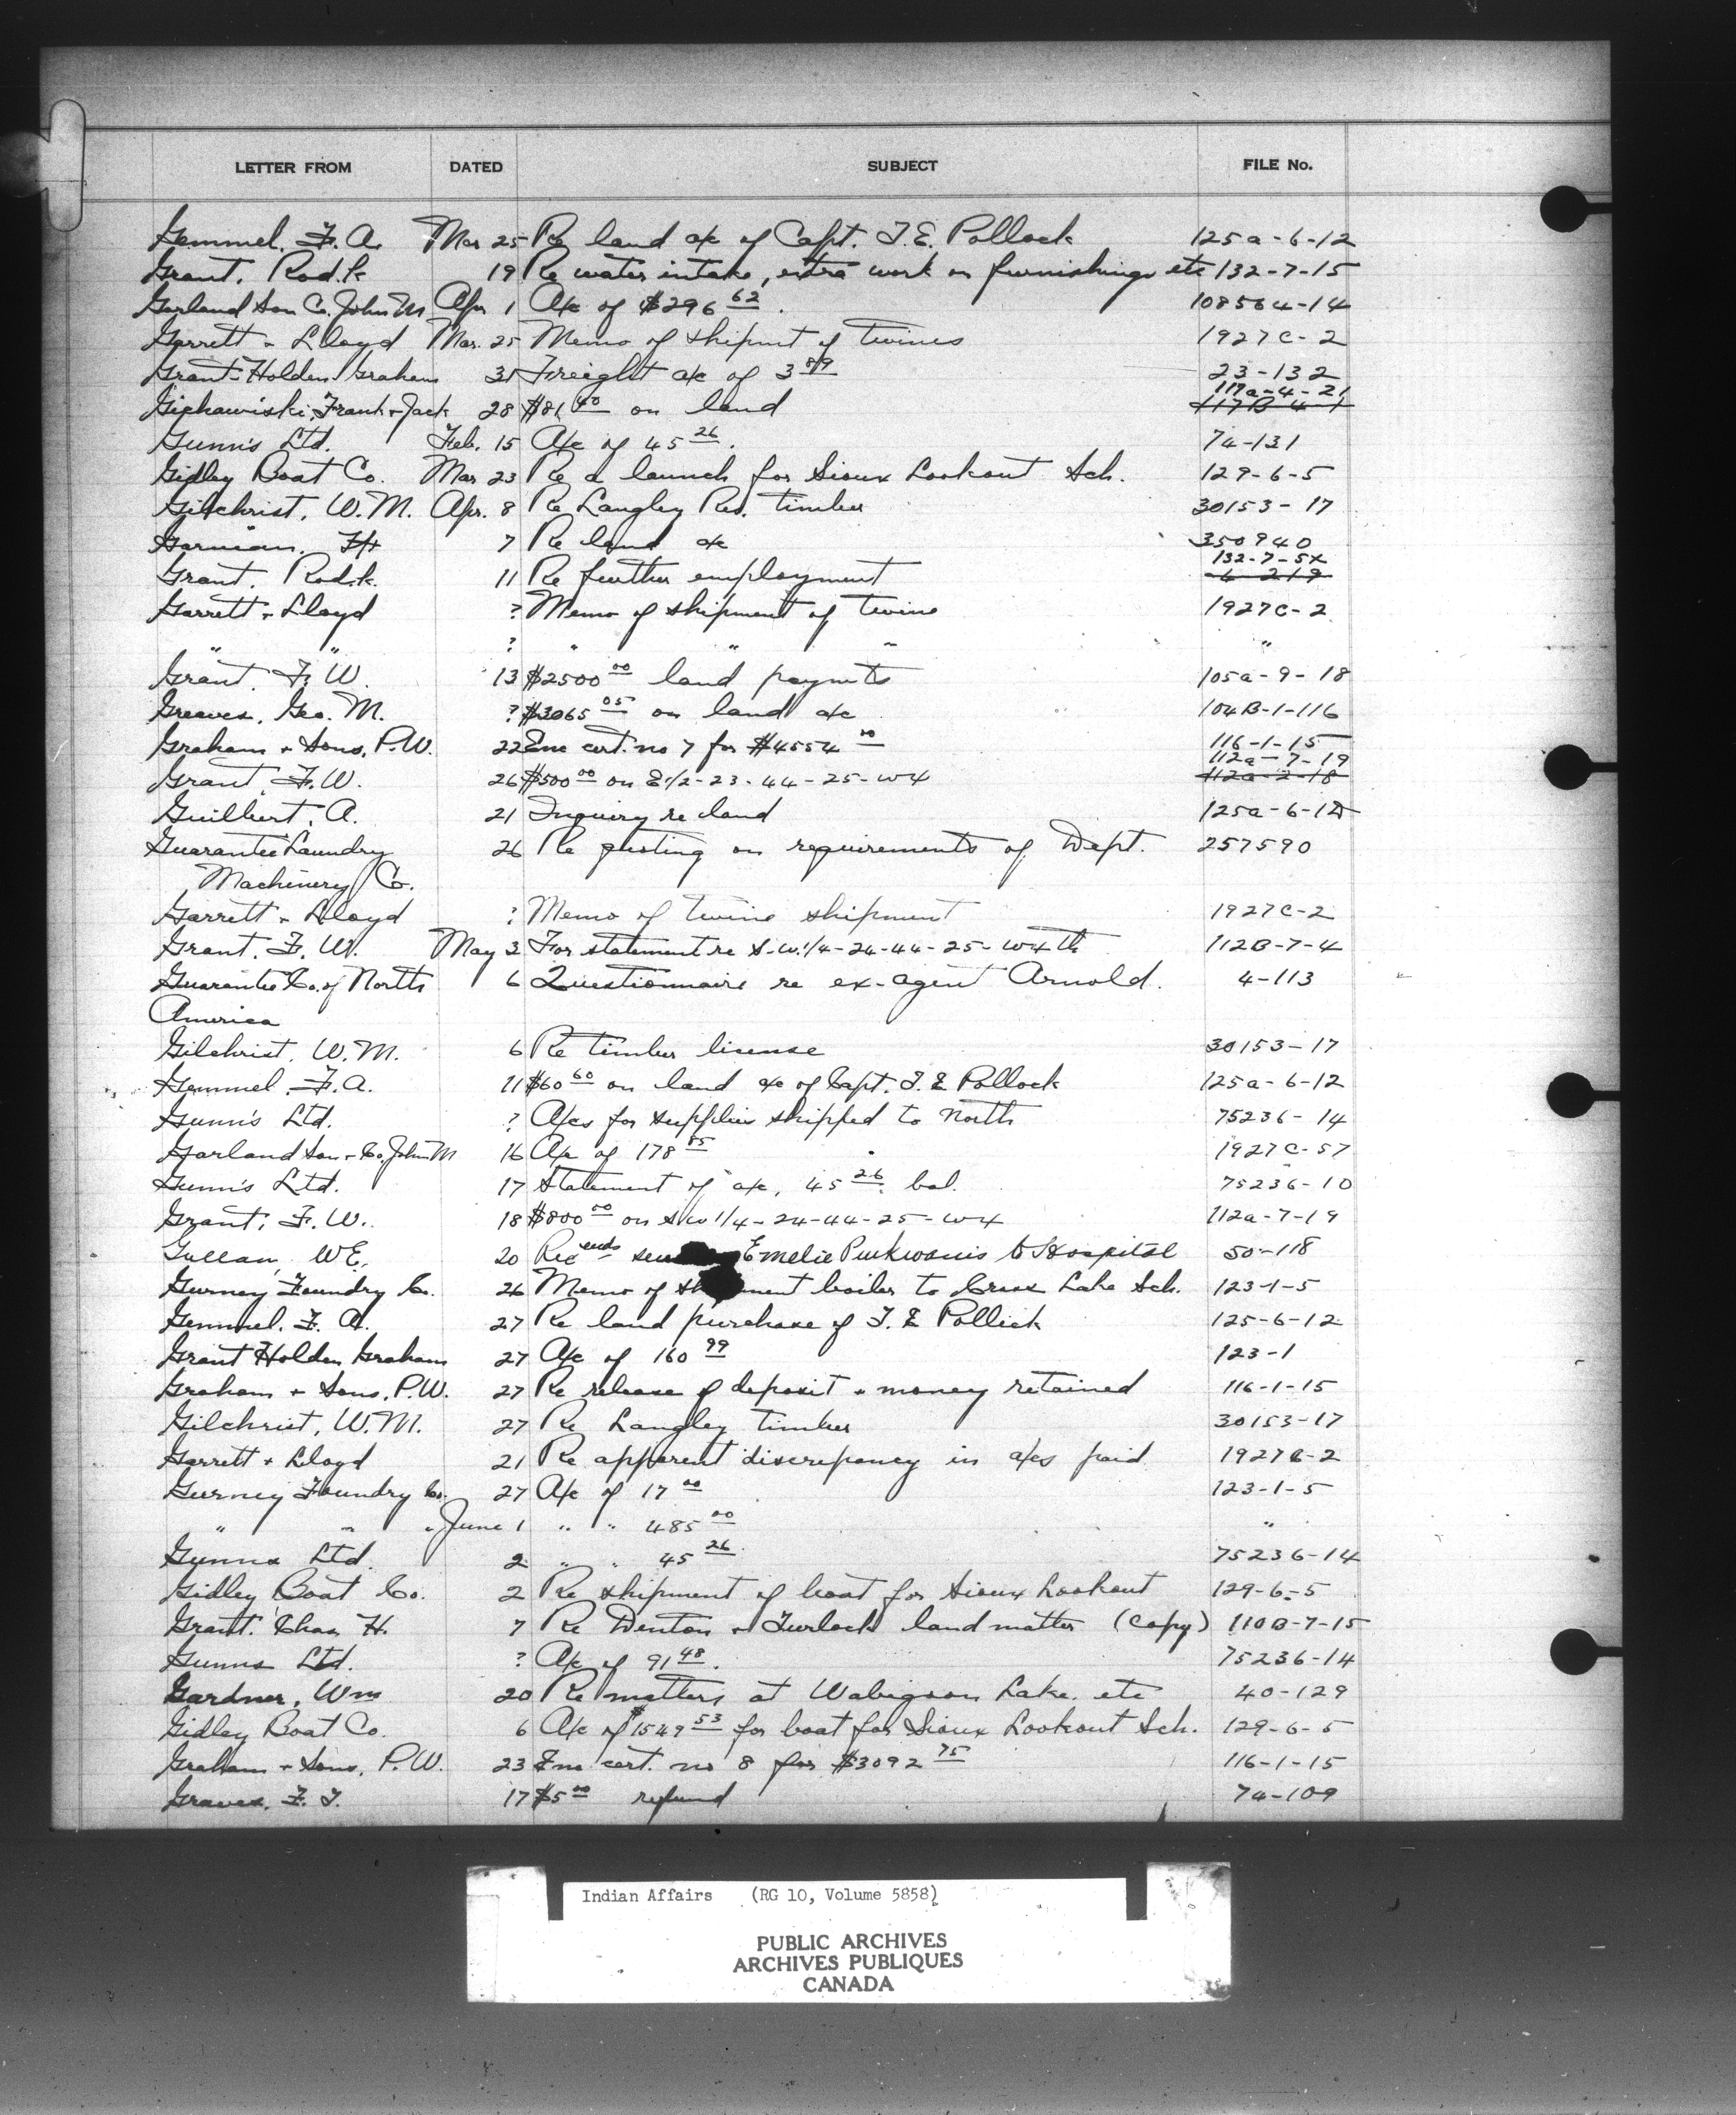 LETTER FROM DATED SUBJECT FILE No.
Gemmel, F. A. Mar 25 Re land a/c of Capt. T. E. Pollock 125a-6-12
Grant, Rod.k 19 Re water intake, extra work on furnishings etc 132-7-15
Garland Son Co. John M Apr 1 A/c of $296 62 108564-14
Garrett + Lloyd Mar. 25 Memo of shipmt of twines 1927C-2
Grant-Holden Graham 31 Freight a/c of 3 89 23-132
117a-4-21
Frank + Jack 28 $81 40 on land 117B-4-1
Gunn's Ltd. Feb. 15 A/c of 45 26. 74-131
Gidley Boat Co. Mar 23 Re a launch for Sioux Lookout Sch. 129-6-5
Gilchrist, W. M. Apr. 8 Re Langley Res. timber 30153-17
Garman, 7 Re land a/c 350940
132-7-5x
Grant, Rod.k. 11 Re further employment 6-219
Garrett + Lloyd ? Memo of shipment of twine 1927C-2
" " ? " " " "
Grant, F. W. 13 $2500 00 land paymts 105a-9-18
Greaves, Geo. M. ? $3065 05 on land a/c 104B-1-116
Graham + Sons, P. W. 22 Enc cert. no 7 for $4554 00 116-1-15
112a-7-19
Grant, F. W. 26 $500 00 on E 1/2-23-44-25-W4 112a-2-18
Guilbert, A. 21 Inquiry re land 125a-6-12
Guarantee Laundry 26 Re quoting on requirements of Dept. 257590
Machinery Co.
Garrett + Lloyd ? Memo of twine shipment 1927C-2
Grant, F. W. May 3 For statement re S.W. 1/4-24-44-25-W4th 112B-7-4
Guarantee Co. of North 6 Questionnaire re ex-agent Arnold. 4-113
America
Gilchrist, W. M. 6 Re timber license 30153-17
Gemmel, F. A. 11 $60 60 on land a/c of Capt. T. E Pollock 125a-6-12
Gunn's Ltd. ? A/cs for supplies shipped to North 75236-14
Garland Son + Co. John M 16 A/c of 178 1927C-57
Gunn's Ltd. 17 Statement of a/c, 45 26 bal. 75236-10
Grant, F. W. 18 $800 00 on S.W 1/4-24-44-25-W4 112a-7-19
W E. 20 Rec ends Emelie to Hospital 50-118
Gurney Foundry Co. 26 Memo of sh ment boiler to Cross Lake Sch. 123-1-5
Gemmel, F. A. 27 Re land purchase of T. E Pollick 125-6-12
Grant Holden Graham 27 A/c of 160 99 123-1
Graham + Sons, P. W. 27 Re release of deposit + money retained 116-1-15
Gilchrist, W. M. 27 Re Langley timber 30153-17
Garrett + Lloyd 21 Re apparent discrepancy in a/cs paid 1927C-2
Gurney Foundry Co. 27 A/c of 17 00 123-1-5
" " " June 1 " " 485 00 "
Gunns Ltd. 2 " " 45 26. 75236-14
Gidley Boat Co. 2 Re shipment of boat for Sioux Lookout 129-6-5
Grant, Chas H. 7 Re Denton + Turlock land matter (copy) 110B-7-15
Gunns Ltd. ? A/c of 91 48. 75236-14
Gardner, Wm 20 Re matters at Wabigoon Lake etc 40-129
Gidley Boat Co. 6 A/c of $1549 53 for boat for Sioux Lookout Sch. 129-6-5
Graham + Sons, P. W. 23 Enc cert. no 8 for $3092 75 116-1-15
Graves, F. T. 17 $5 00 refund 74-109
Indian Affairs (RG 10, Volume 5858)
PUBLIC ARCHIVES
ARCHIVES PUBLIQUES
CANADA